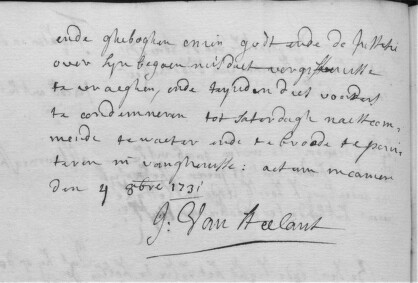 ende gheboghen onsen godt ende de Justitie
over syn begaen misdaet vergiffenisse
te vraeghen, ende ten dien voorders
te condemneren tot saterdagh naestcom-
mende te waeter ende te broode te peni-
teren in vanghenisse: actum in camer
den 4 8bre 1731
J. Van Heelant